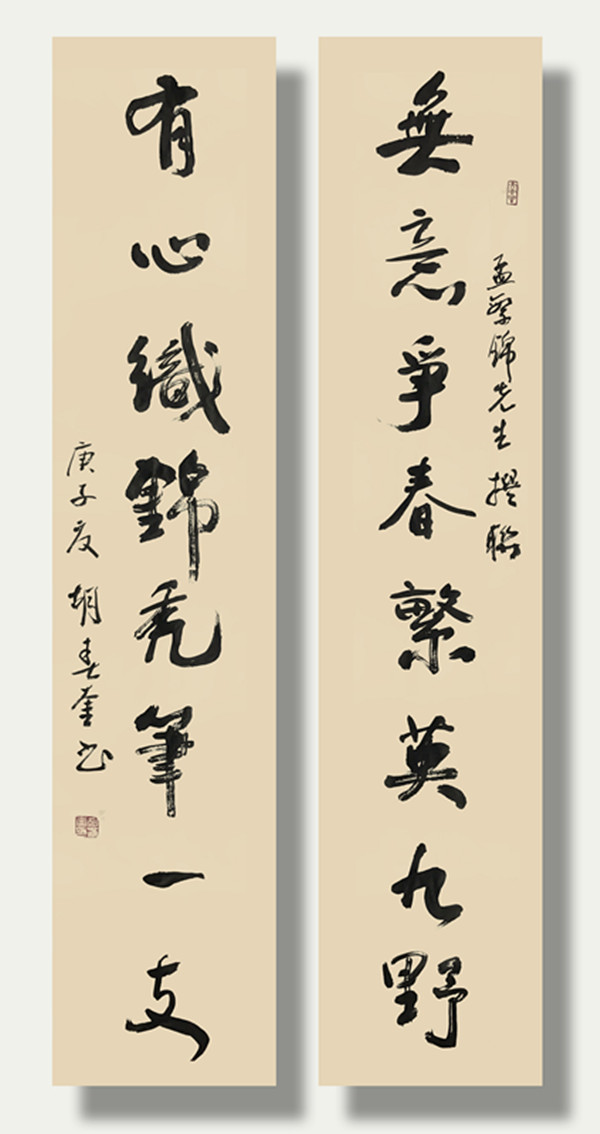 無意爭春繁英九野
孟繁錦先生撰聯
有心織錦秃筆一支
庚子夏 胡春奎书